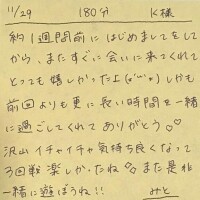 11/29 180分 K様
約1週間前にはじめましてをして
から、またすぐに会いに来てくれて
とっても嬉しかったよ(๑'ω'๑)しかも
前回よりも更に長い時間を一緒
に過ごしてくれてありがとう♡♡
沢山イチャイチャ気持ち良くなって
3回戦楽しかったね♡♡また是非
一緒に遊ぼうね!!
みと